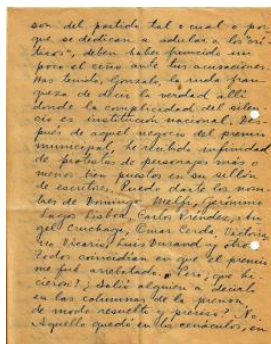 son del partido tal o cual o por-
que se dedican a adular a los "crí-
ticos", deben haber fruncido un
poco el ceño ante tus acusaciones.
Has tenido, Gonzalo, la ruda fran-
queza de decir la verdad allí
donde la complicidad del silen-
cio es institución nacional. Des-
pués de aquel negocio del premio
municipal, he recibido infinidad
de protestas de personajes más o
menos bien puestos en su sillón
de escritores. Puedo darte los nom-
bres de Domingo Melfi, Gerónimo
Lagos Lisboa, Carlos Préndez, An-
gel Cruchaga, Omar Cerda, Victoria-
no Vicario, Luis Durand y otros.
Todos coincidían en que el premio
me fué arrebatado. Pero ¿qué hi-
cieron? ¿Salió alguien a decirlo
en las columnas de la prensa,
de modo resuelto y preciso? No.
Aquello quedó en los cenáculos, en